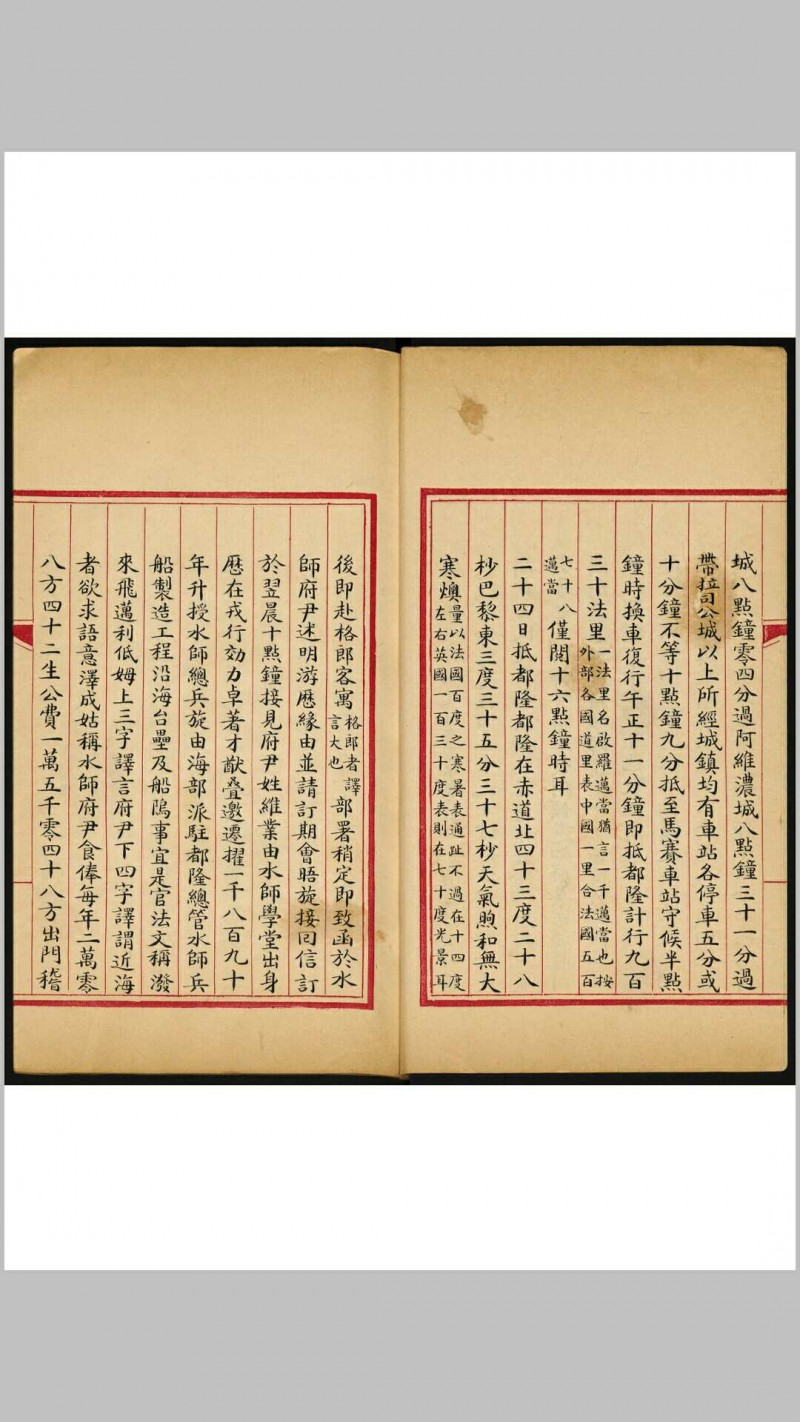 城八點鐘零四分過阿維濃城八點鐘三十一分過
帶拉司公城以上所經城鎮均有車站各停車五分或
十分鐘不等十點鐘九分抵至馬賽車站守候半點
鐘時換車復行午正十一分鐘即抵都隆計行九百
三十法里一法里名啟羅邁當猶言一千邁當也按外部各國道里表中國一里合法國五百
七十八邁當僅閱十六點鐘時耳
二十四日抵都隆都隆在赤道北四十三度二十八
杪巴黎東三度三十五分三十七杪天氣煦和無大
寒燠量以法國百度之寒暑表通趾不過在十四度左右英國一百三十度表則在七十度光景耳
後即赴格郎客寓格郎者譯言大也部署稍定即致函於水
師府尹述明游歷緣由並請訂期會晤旋接囘信訂
於翌晨十點鐘接見府尹姓維業由水師學堂出身
歷在戎行効力卓著才猷疊邀遷擢一千八百九十
年升授水師總兵旋由海部派駐都隆總管水師兵
船製造工程沿海台壘及船隖事宜是官法文稱潑
來飛邁利低姆上三字譯言府尹下四字譯謂近海
者欲求語意澤成姑稱水師府尹食俸每年二萬零
八方四十二生公費一萬五千零四十八方出門稽